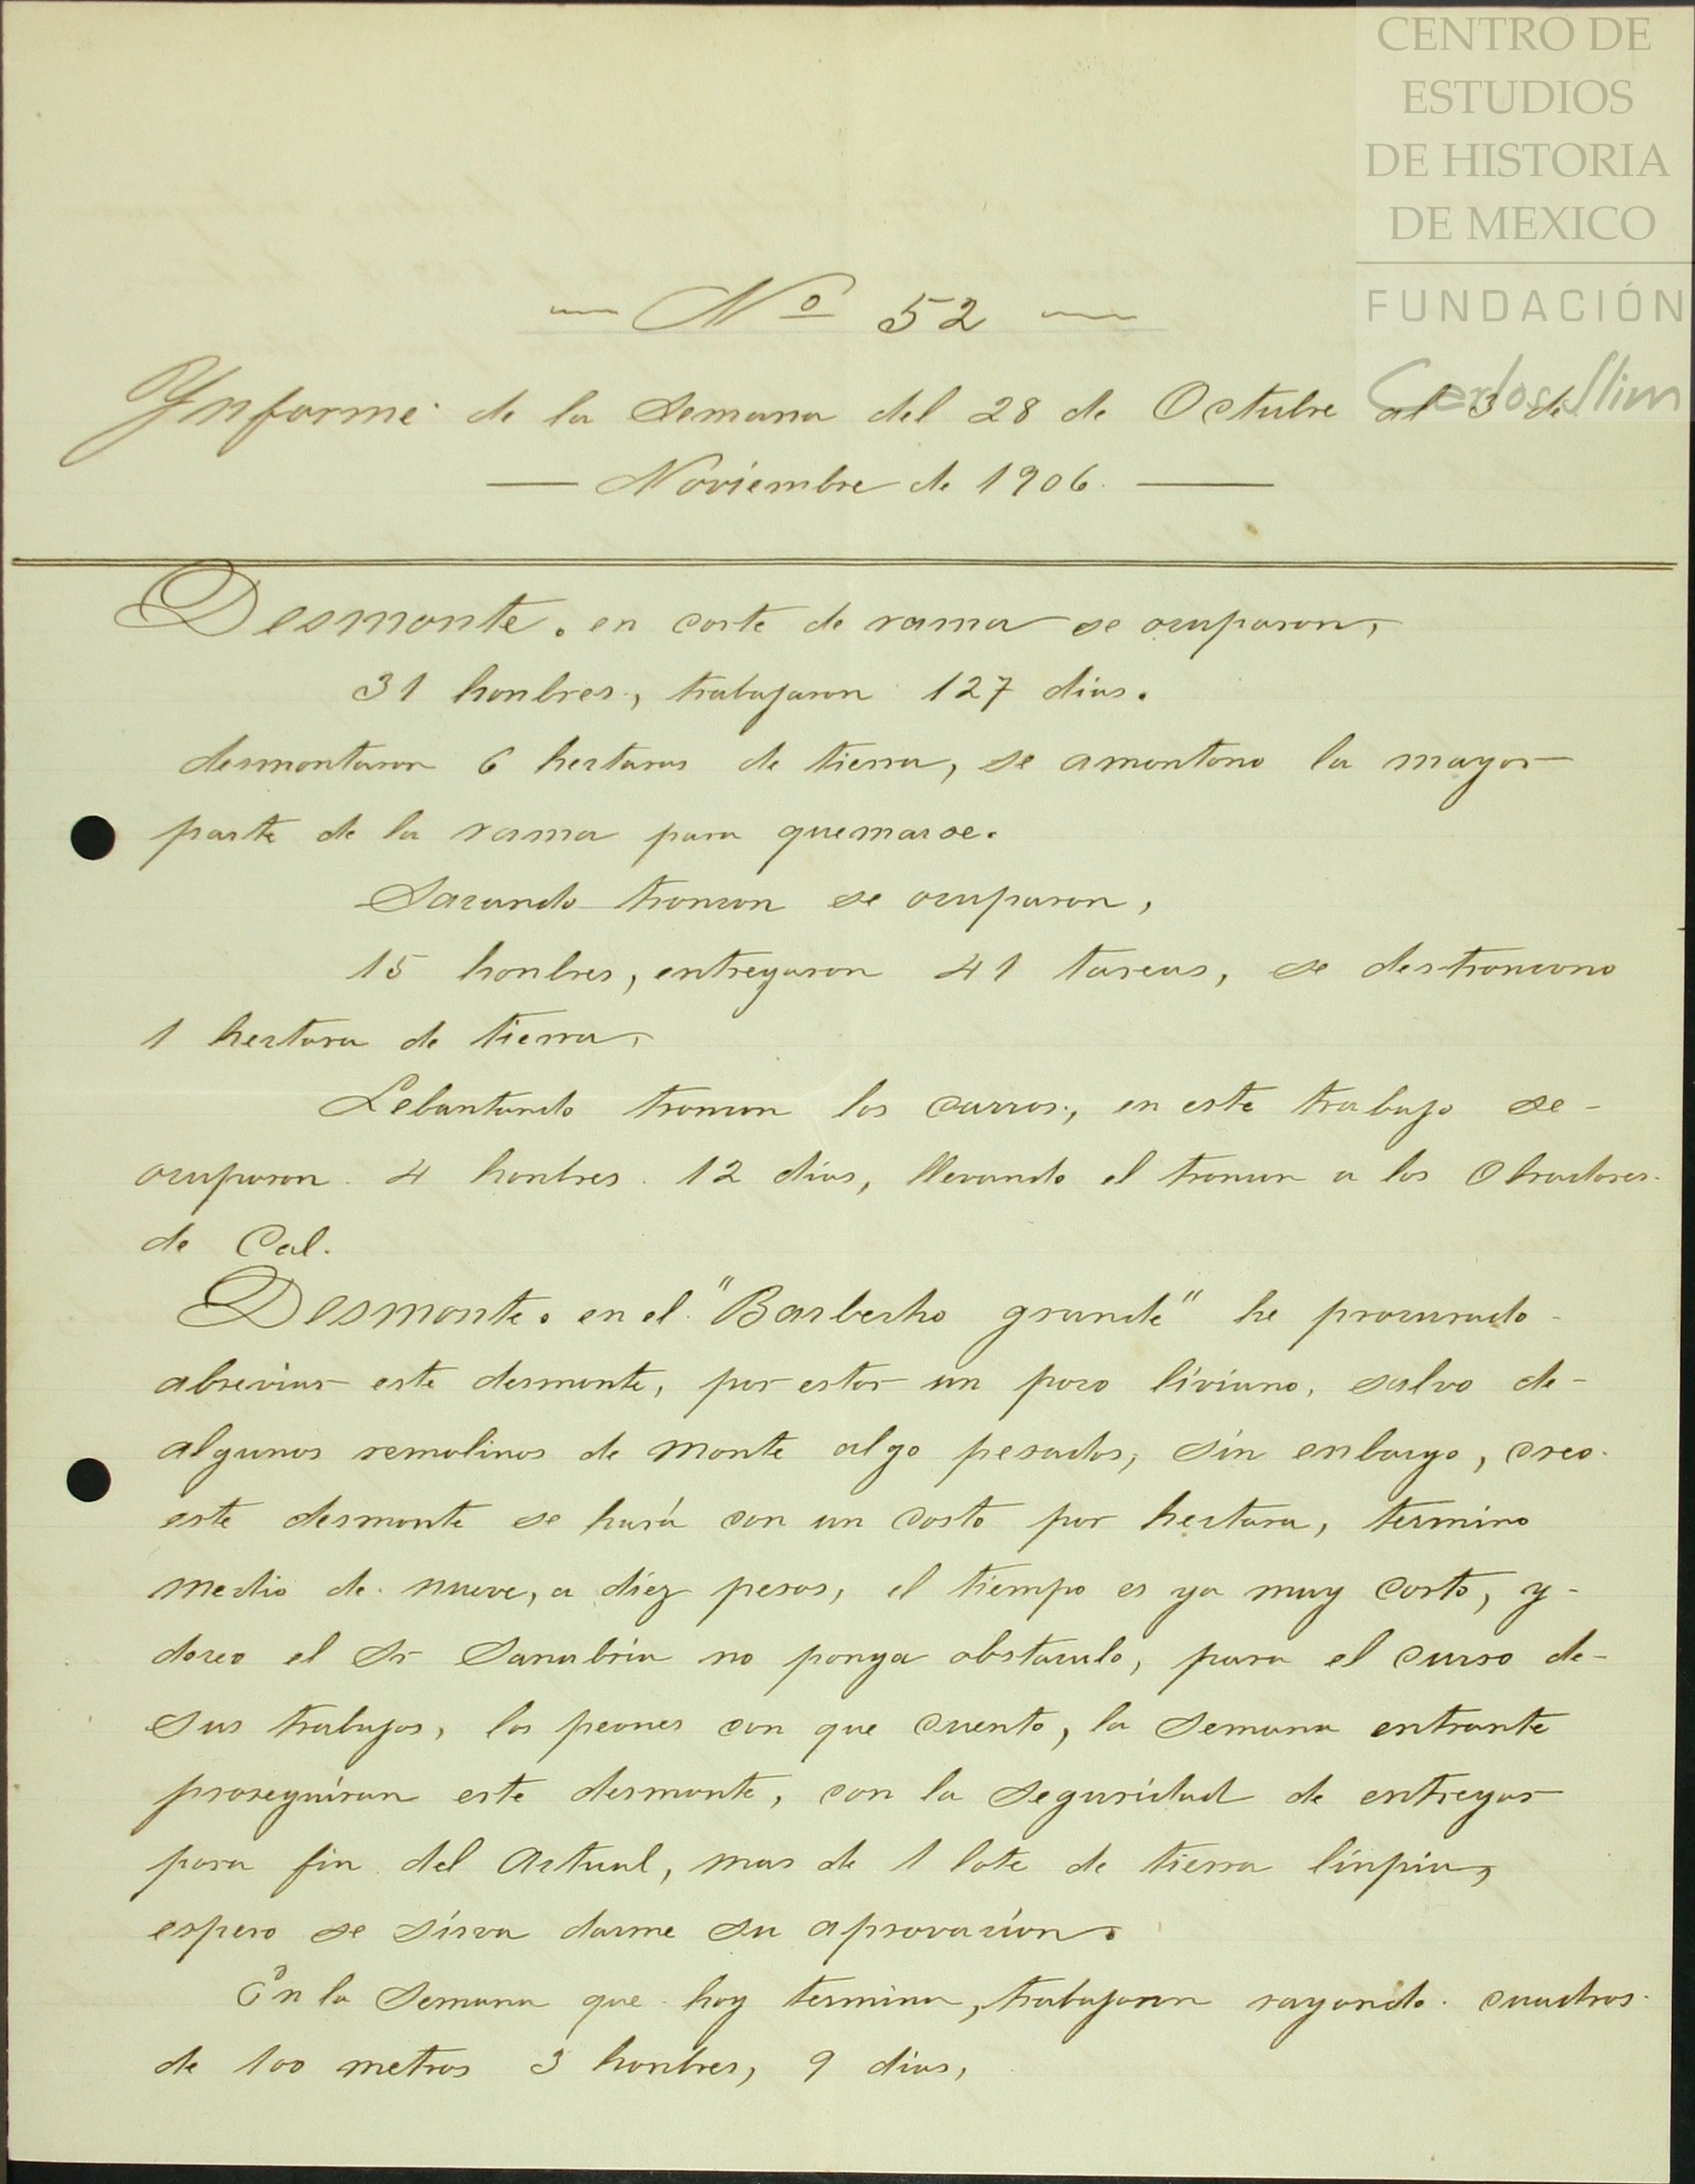 CENTRO DE
ESTUDIOS
DE HISTORIA
DE MEXICO
FUNDACIÓN
Carlos Slim
— Nº 52 —
Ynforme de la Semana del 28 de Octubre al 3 de
— Noviembre de 1906. —
Desmonte. en corte de rama se ocuparon,
31 honbres, trabajaron 127 dias.
desmontaron 6 hectaras de tierra, se amontono la mayor
parte de la rama para quemarse.
Sacando troncon se ocuparon,
15 honbres, entregaron 41 tareas, se destroncono
1 hectara de tierra,
Lebantando troncon los carros, en este trabajo se -
ocuparon 4 honbres 12 dias, llevando el troncon a los Obradores
de Cal.
Desmonte. en el "Barbecho grande" he procurado -
abreviar este desmonte, por estar un poco liviano, salvo de -
algunos remolinos de monte algo pesados, sin enbargo, creo
este desmonte se hará con un costo por hectara, termino
medio de nueve, a diez pesos, el tiempo es ya muy corto, y -
deseo el Sr Sanabria no ponga obstaculo, para el curso de -
sus trabajos, los peones con que cuento, la Semana entrante
proseguiran este desmonte, con la seguridad de entregar
para fin del Actual, mas de 1 lote de tierra linpia,
espero se sirva darme su aprovacion.
En la Semana que hoy termina, trabajaron rayando cuadros
de 100 metros 3 honbres, 9 dias,